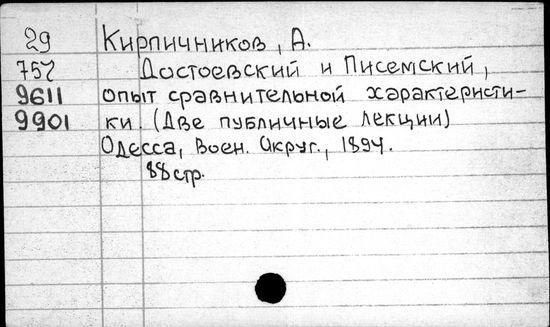 29 Кирпичников, А.
757 Достоевский и Писемский,
9611 опыт сравнительной характеристи-
9901 ки. (Две публичные лекции)
Одесса, Воен. Округ., 1894.
88стр.